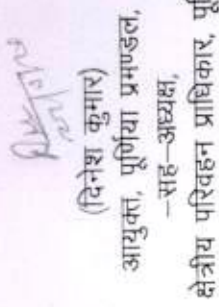 (दिनेश कुमार)
आयुक्त, पूर्णिया प्रमण्डल,
–सह–अध्यक्ष,
क्षेत्रीय परिवहन प्राधिकार,